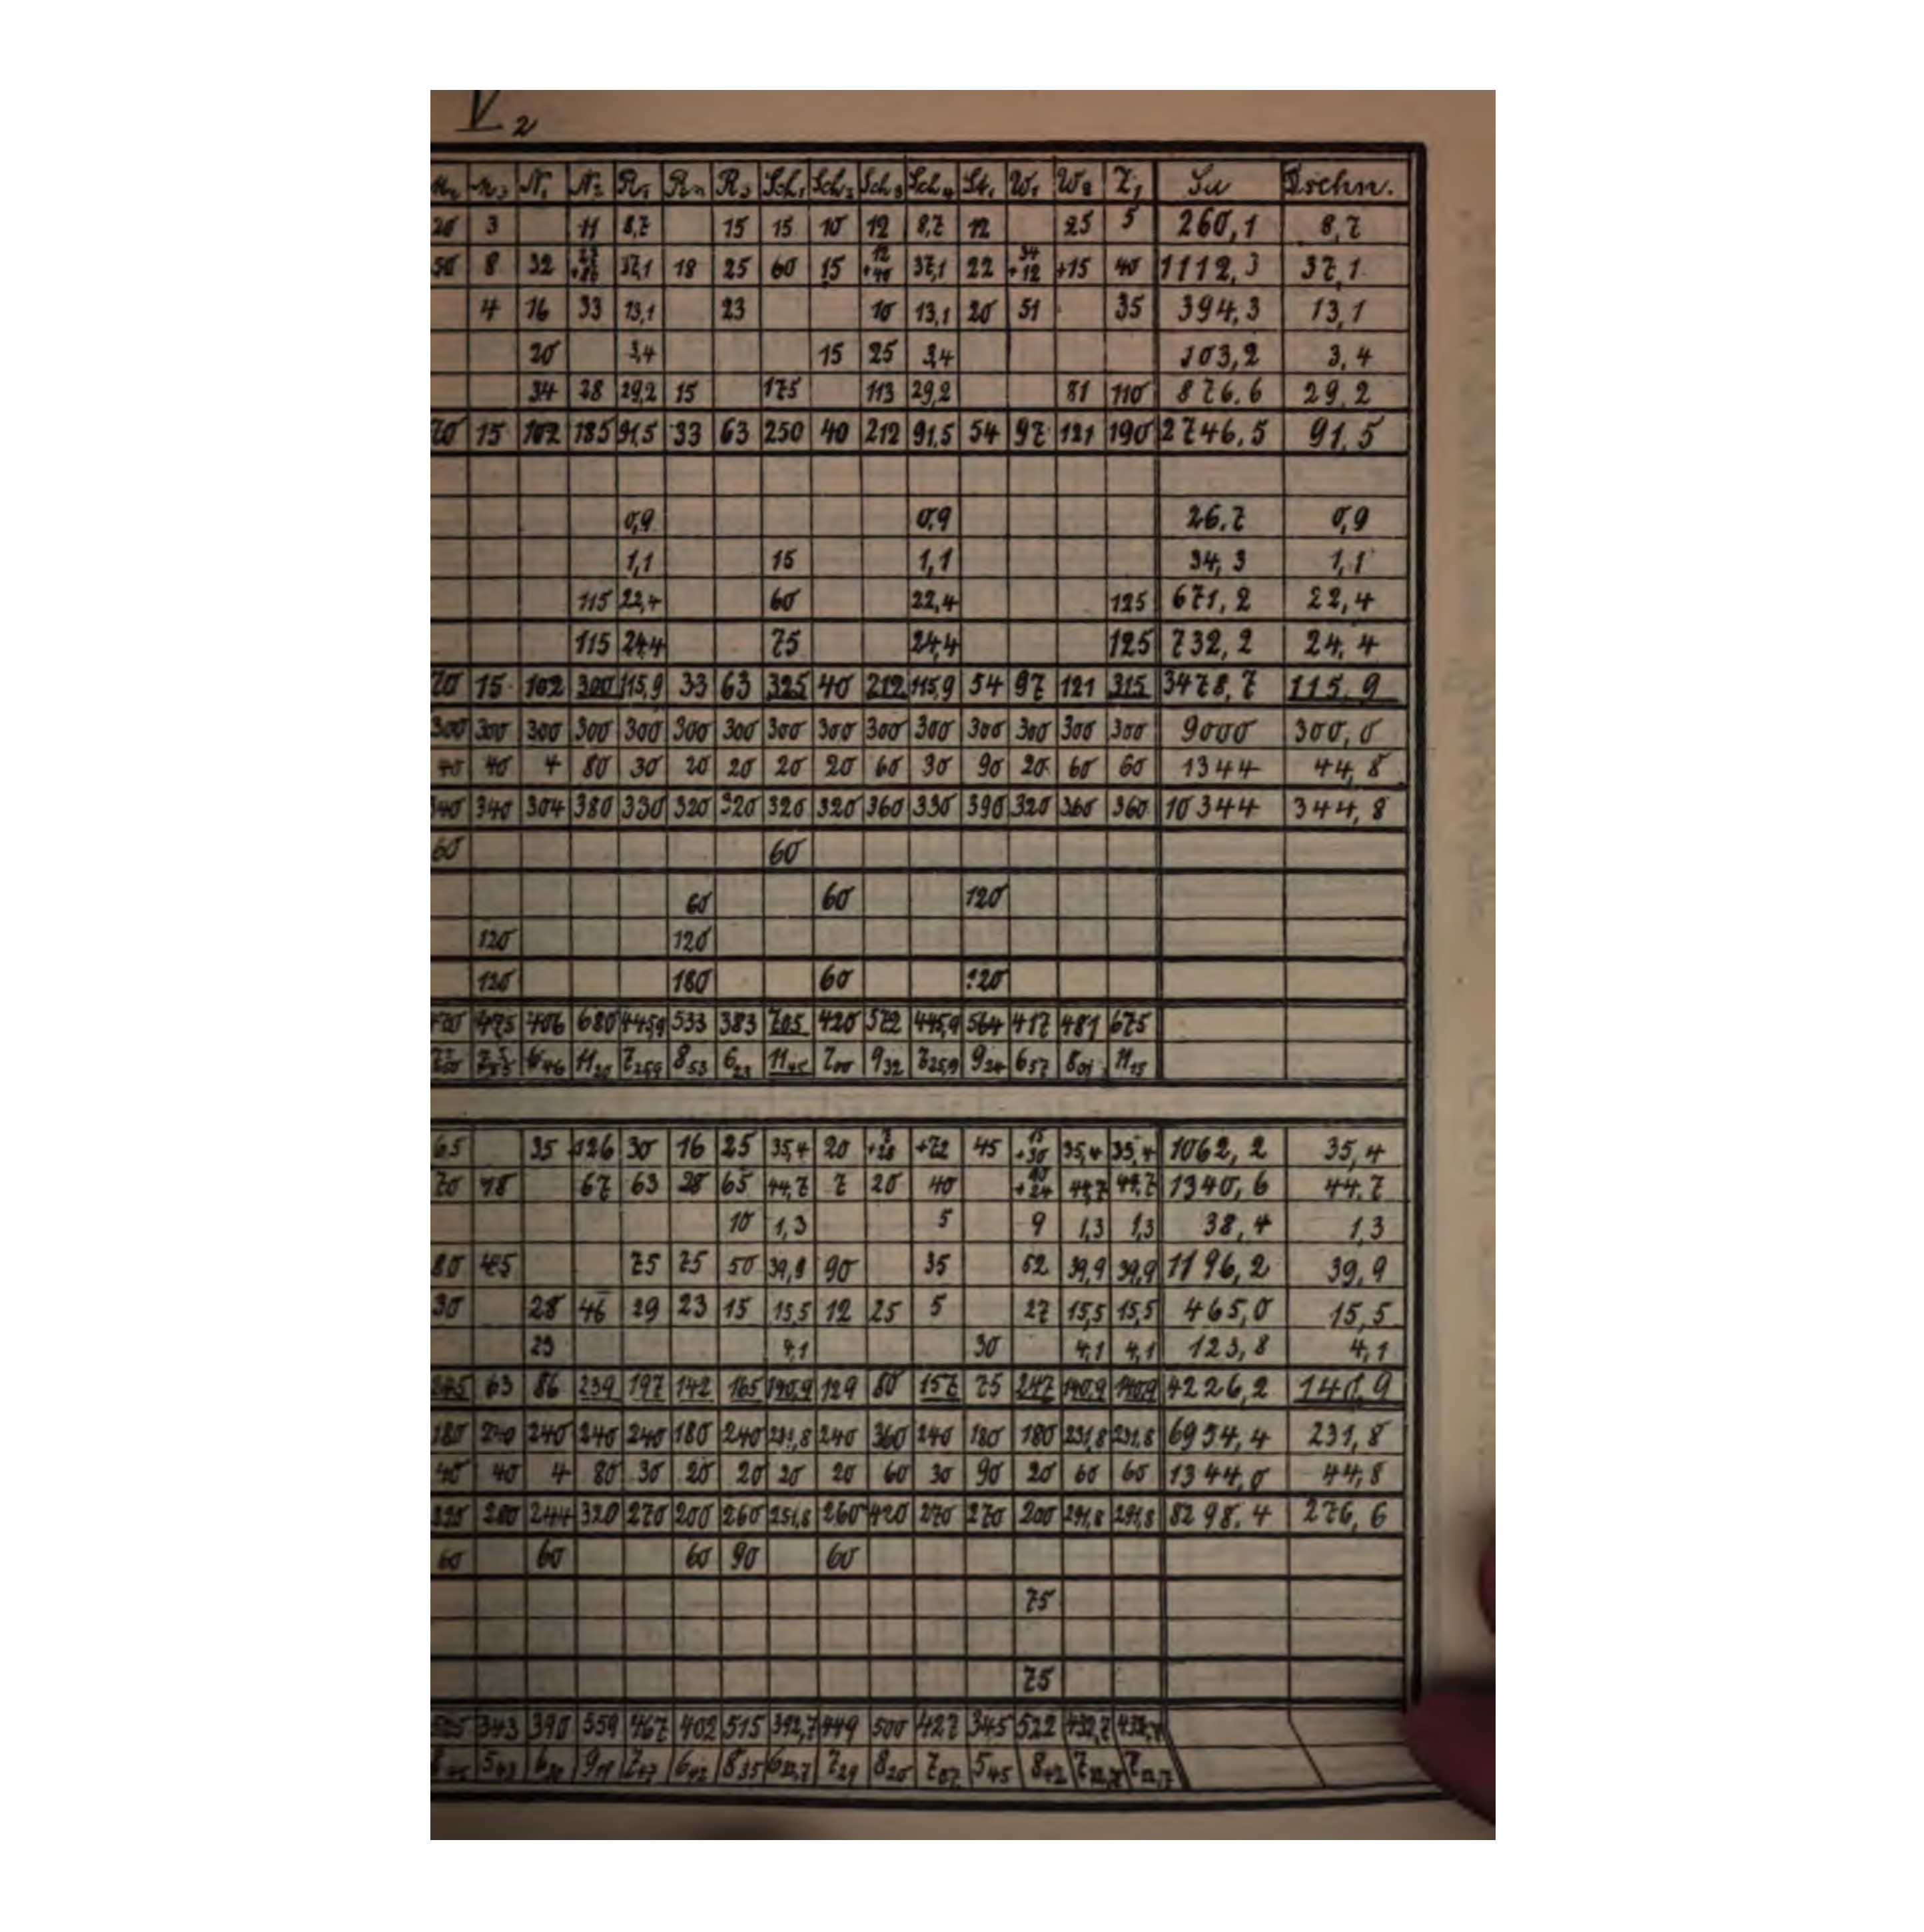 V 2
M2 M3 N1 N2 R1 R2 R3 Sch1 Sch2 Sch3 Sch4 St1 W1 W2 Z1 Su Drchn.
20 3 11 8,7 15 15 10 12 8,7 12 25 5 260,1 8,7
50 8 32 27 +86 37,1 18 25 60 15 12 +40 37,1 22 34 +12 +15 40 1112,3 37,1
4 16 33 13,1 23 10 13,1 20 51 35 394,3 13,1
20 3,4 15 25 3,4 103,2 3,4
34 28 29,2 15 175 113 29,2 81 110 876,6 29,2
70 15 102 185 91,5 33 63 250 40 212 91,5 54 97 121 190 2746,5 91,5
0,9 0,9 26,7 0,9
1,1 15 1,1 34,3 1,1
115 22,4 60 22,4 125 671,2 22,4
115 24,4 75 24,4 125 732,2 24,4
70 15 102 300 115,9 33 63 325 40 212 115,9 54 97 121 315 3478,7 115,9
300 300 300 300 300 300 300 300 300 300 300 300 300 300 300 9000 300,0
40 40 4 80 30 20 20 20 20 60 30 90 20 60 60 1344 44,8
340 340 304 380 330 320 320 320 320 360 330 390 320 360 360 10344 344,8
60 60
60 60 120
120 120
120 180 60 120
470 475 406 680 445,9 533 383 705 420 572 445,9 564 417 481 675
7 50 7 55 6 46 11 20 7 25,9 8 53 6 23 11 45 7 00 9 32 7 25,9 9 24 6 57 8 01 11 15
65 35 126 30 16 25 35,4 20 7 +28 +72 45 15 +30 35,4 35,4 1062,2 35,4
70 18 67 63 28 65 44,7 7 20 40 40 +24 44,7 44,7 1340,6 44,7
10 1,3 5 9 1,3 1,3 38,4 1,3
80 45 75 75 50 39,9 90 35 62 39,9 39,9 1196,2 39,9
30 28 46 29 23 15 15,5 12 25 5 27 15,5 15,5 465,0 15,5
23 4,1 30 4,1 4,1 123,8 4,1
245 63 86 239 197 142 165 140,9 129 80 157 75 247 140,9 140,9 4226,2 140,9
180 240 240 240 240 180 240 231,8 240 360 240 180 180 231,8 231,8 6954,4 231,8
40 40 4 80 30 20 20 20 20 60 30 90 20 60 60 1344,0 44,8
220 280 244 320 270 200 260 251,8 260 420 270 270 200 291,8 291,8 8298,4 276,6
60 60 60 90 60
75
75
525 343 390 559 467 402 515 392,7 449 500 427 345 522 432,7 432,7
8 45 5 43 6 30 9 19 7 47 6 42 8 35 6 32,7 7 29 8 20 7 07 5 45 8 42 7 12,7 7 12,7